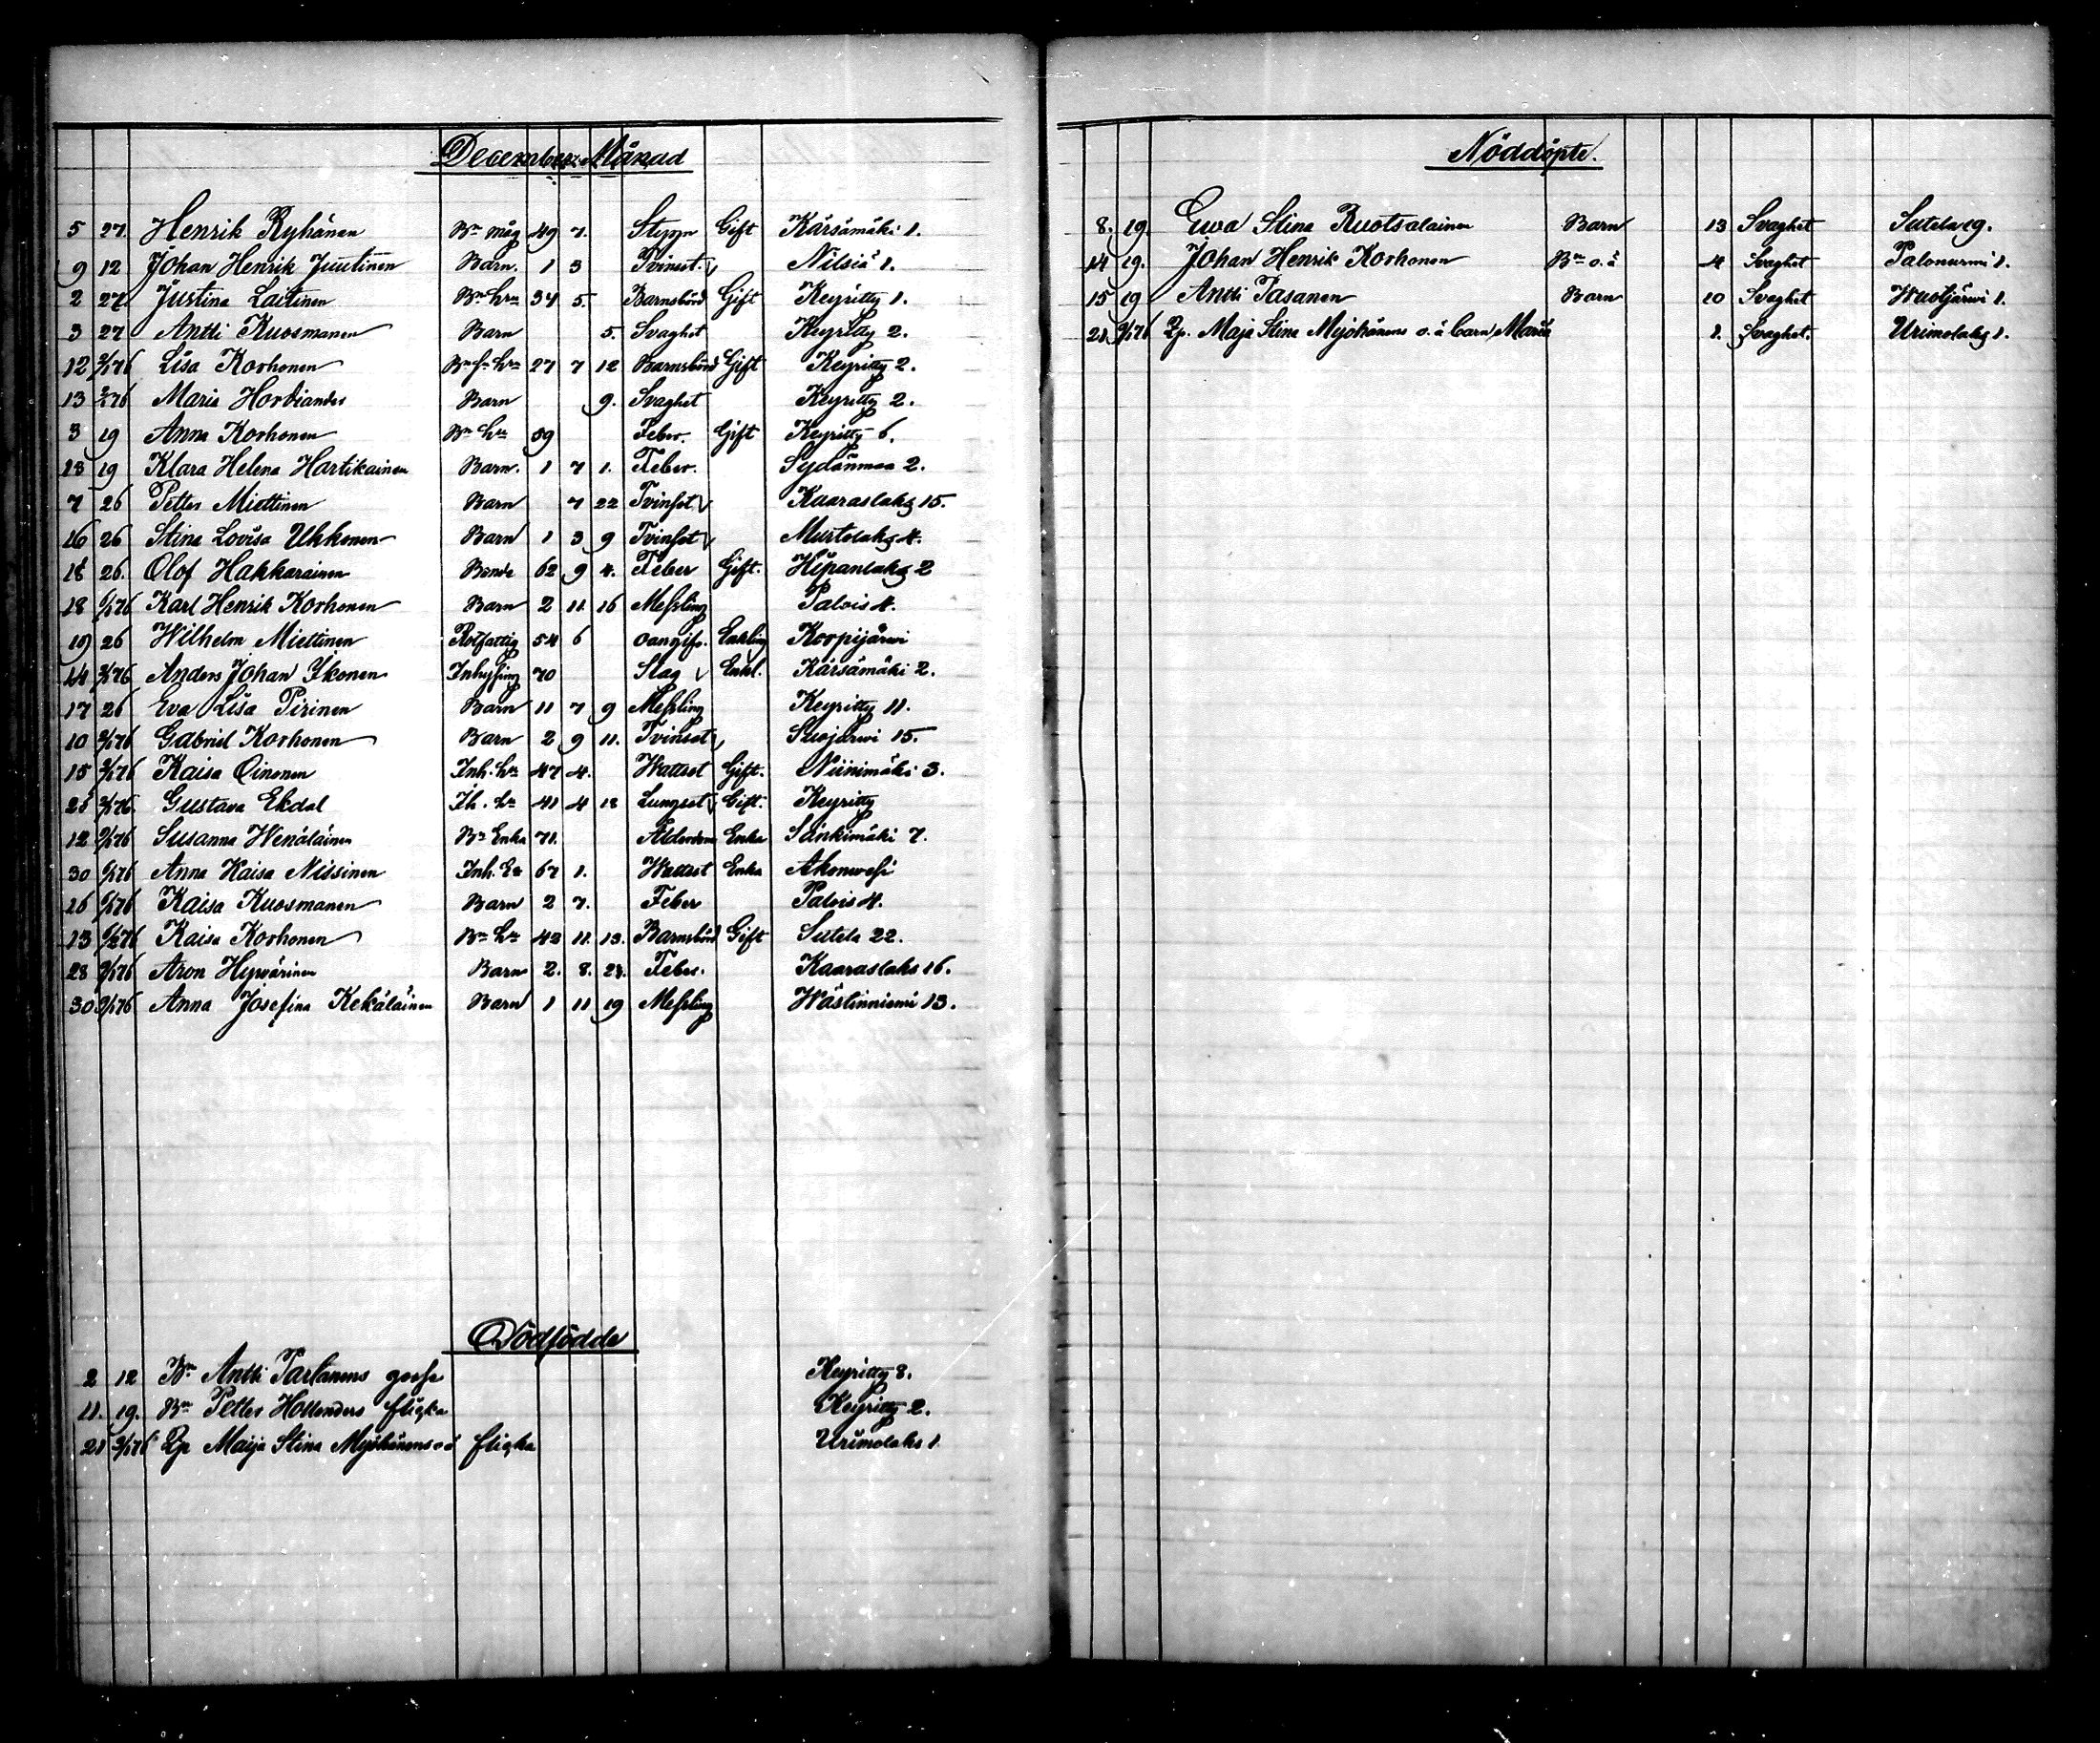 December Månad
5 27. Henrik Ryhänen Bn måg 49 7. Styng Gift Kärsämäki 1.
9 12 Johan Henrik Juutinen Barn. 1 3 Tvinsot. Nilsiä 1.
2 27 Justina Laitinen Bn hru 34 5. Barnsbörd Gift Keyritty 1.
3 27 Antti Kuosmanen Barn 5. Svaghet Keyritty 2.
12 Lisa Korhonen 27 7 12 Barnsbörd Gift Keyritty 2.
13 Maria Barn 9. Svaghet Keyritty 2.
3 19 Anna Korhonen Bn hu 59 Feber. Gift Keyritty 6.
13 19 Klara Helena Hartikainen Barn. 1 7 1. Feber. Sydänmaa 2.
7 26 Petter Miettinen Barn 7 22 Tvinsot Kaaraslaks 15.
16 26 Stina Lovisa Ukkonen Barn 1 3 9 Tvinsot Murtolaks 4.
18 26. Olof Hakkarainen Bonde 62 9 4. Feber Gift. Hipanlaks 2
18 Karl Henrik Korhonen Barn 2 11. 16 Messling Palois 4.
19 26 Wilhelm Miettinen Rotfattig 54 6 oangifv. Enkling Korpijärvi
14 Anders Johan Ikonen Inhysing 70 Slag Enkl. Kärsämäki 2.
17 26 Eva Lisa Pirinen Barn 11 7 9 Messling Keyritty 11.
10 Gabriel Korhonen Barn 2 9 11. Tvinsot Suojärwi 15.
15 Kaisa Oinonen Inh. hu 47 4. Wattsot Gift. Niinimäki 3.
25 Gustava Ekdal Ih. hu 41 4 18 Lungsot Gift. Keyritty
12 Susanna Wenäläinen Bn Enka 71. Ålderdom Enka Sänkimäki 7.
30 Anna Kaisa Nissinen Inh. Ea 67 1. Wattsot Enka Akonwesi
26 Kaisa Kuosmanen Barn 2 7. Feber Palois 4.
13 Kaisa Korhonen Bn hu 42 11. 13. Barnsbörd Gift Sutela 22.
28 Aron Hyvärinen Barn 2. 8. 28. Feber. Kaaraslaks 16.
30 Anna Josefina Kekäläinen Barn 1 11 19 Messling Wästinniemi 13.
Dödfödde
2 12 Bn Antti Partanens gosse Keyritty 8.
11. 19. Bn Petter Hollenders flicka Keyritty 2.
21 Lp Maija Stina Myöhänens o ä flicka Urimolaks 1
Nöddöpte.
8. 19 Ewa Stina Ruotsalainen Barn 13 Svaghet Sutela 19.
14 19. Johan Henrik Korhonen Bn o. ä 4 Svaghet Palonurmi 1.
15 19 Antti Tasanen Barn 10 Svaghet Wuotjärwi 1.
21 Lp. Maja Stina Myöhänens o. ä barn Maria 1. Svaghet. Urimolaks 1.